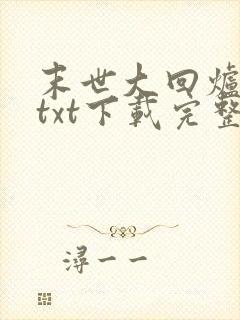 末世大回爐
txt下載完整
潯一一